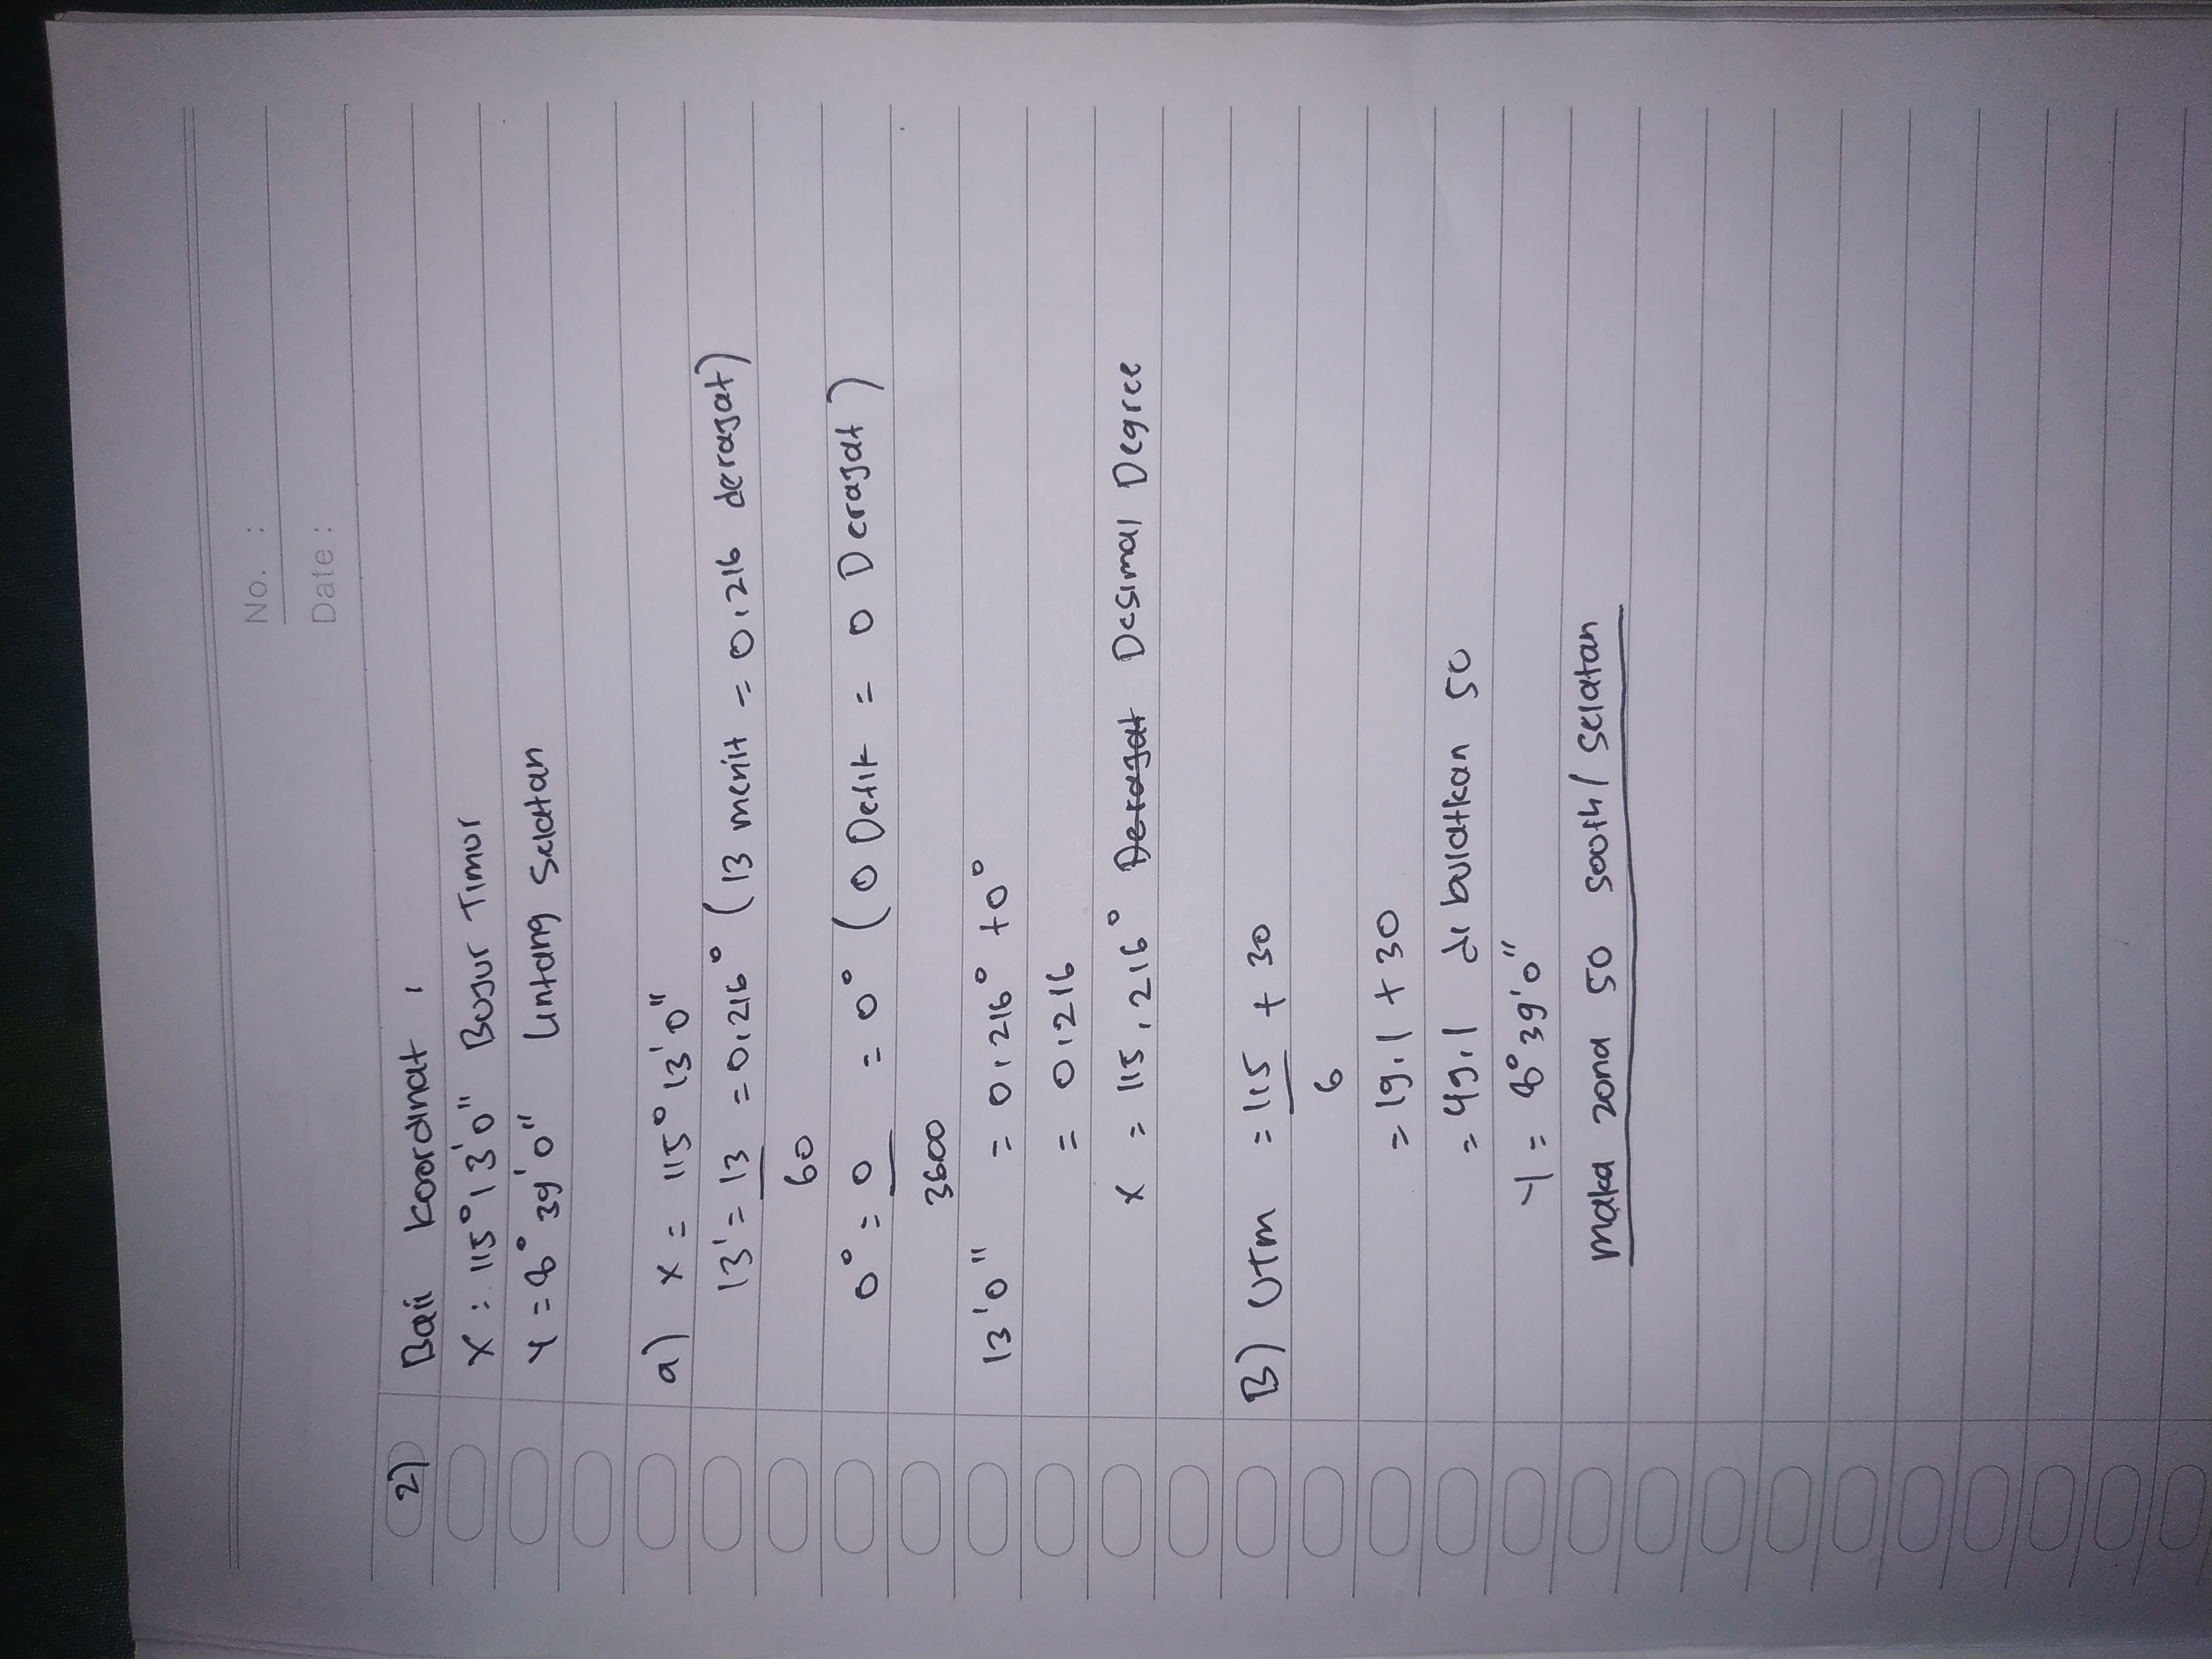 No. :
Date :
2) Bali Koordinat :
X : 115° 13' 0" Bujur Timur
Y = 8° 39' 0" Lintang Selatan
a) X = 115° 13' 0"
13' = 13 = 0,216° (13 menit = 0,216 derajat)
60
0° = 0 = 0° (0 Detik = 0 Derajat)
3600
13' 0" = 0,216° + 0°
= 0,216
X = 115,216° Derajat Desimal Degree
B) UTM = 115 + 30
6
= 19,1 + 30
= 49,1 di bulatkan 50
Y = 8° 39' 0"
maka zona 50 south / selatan